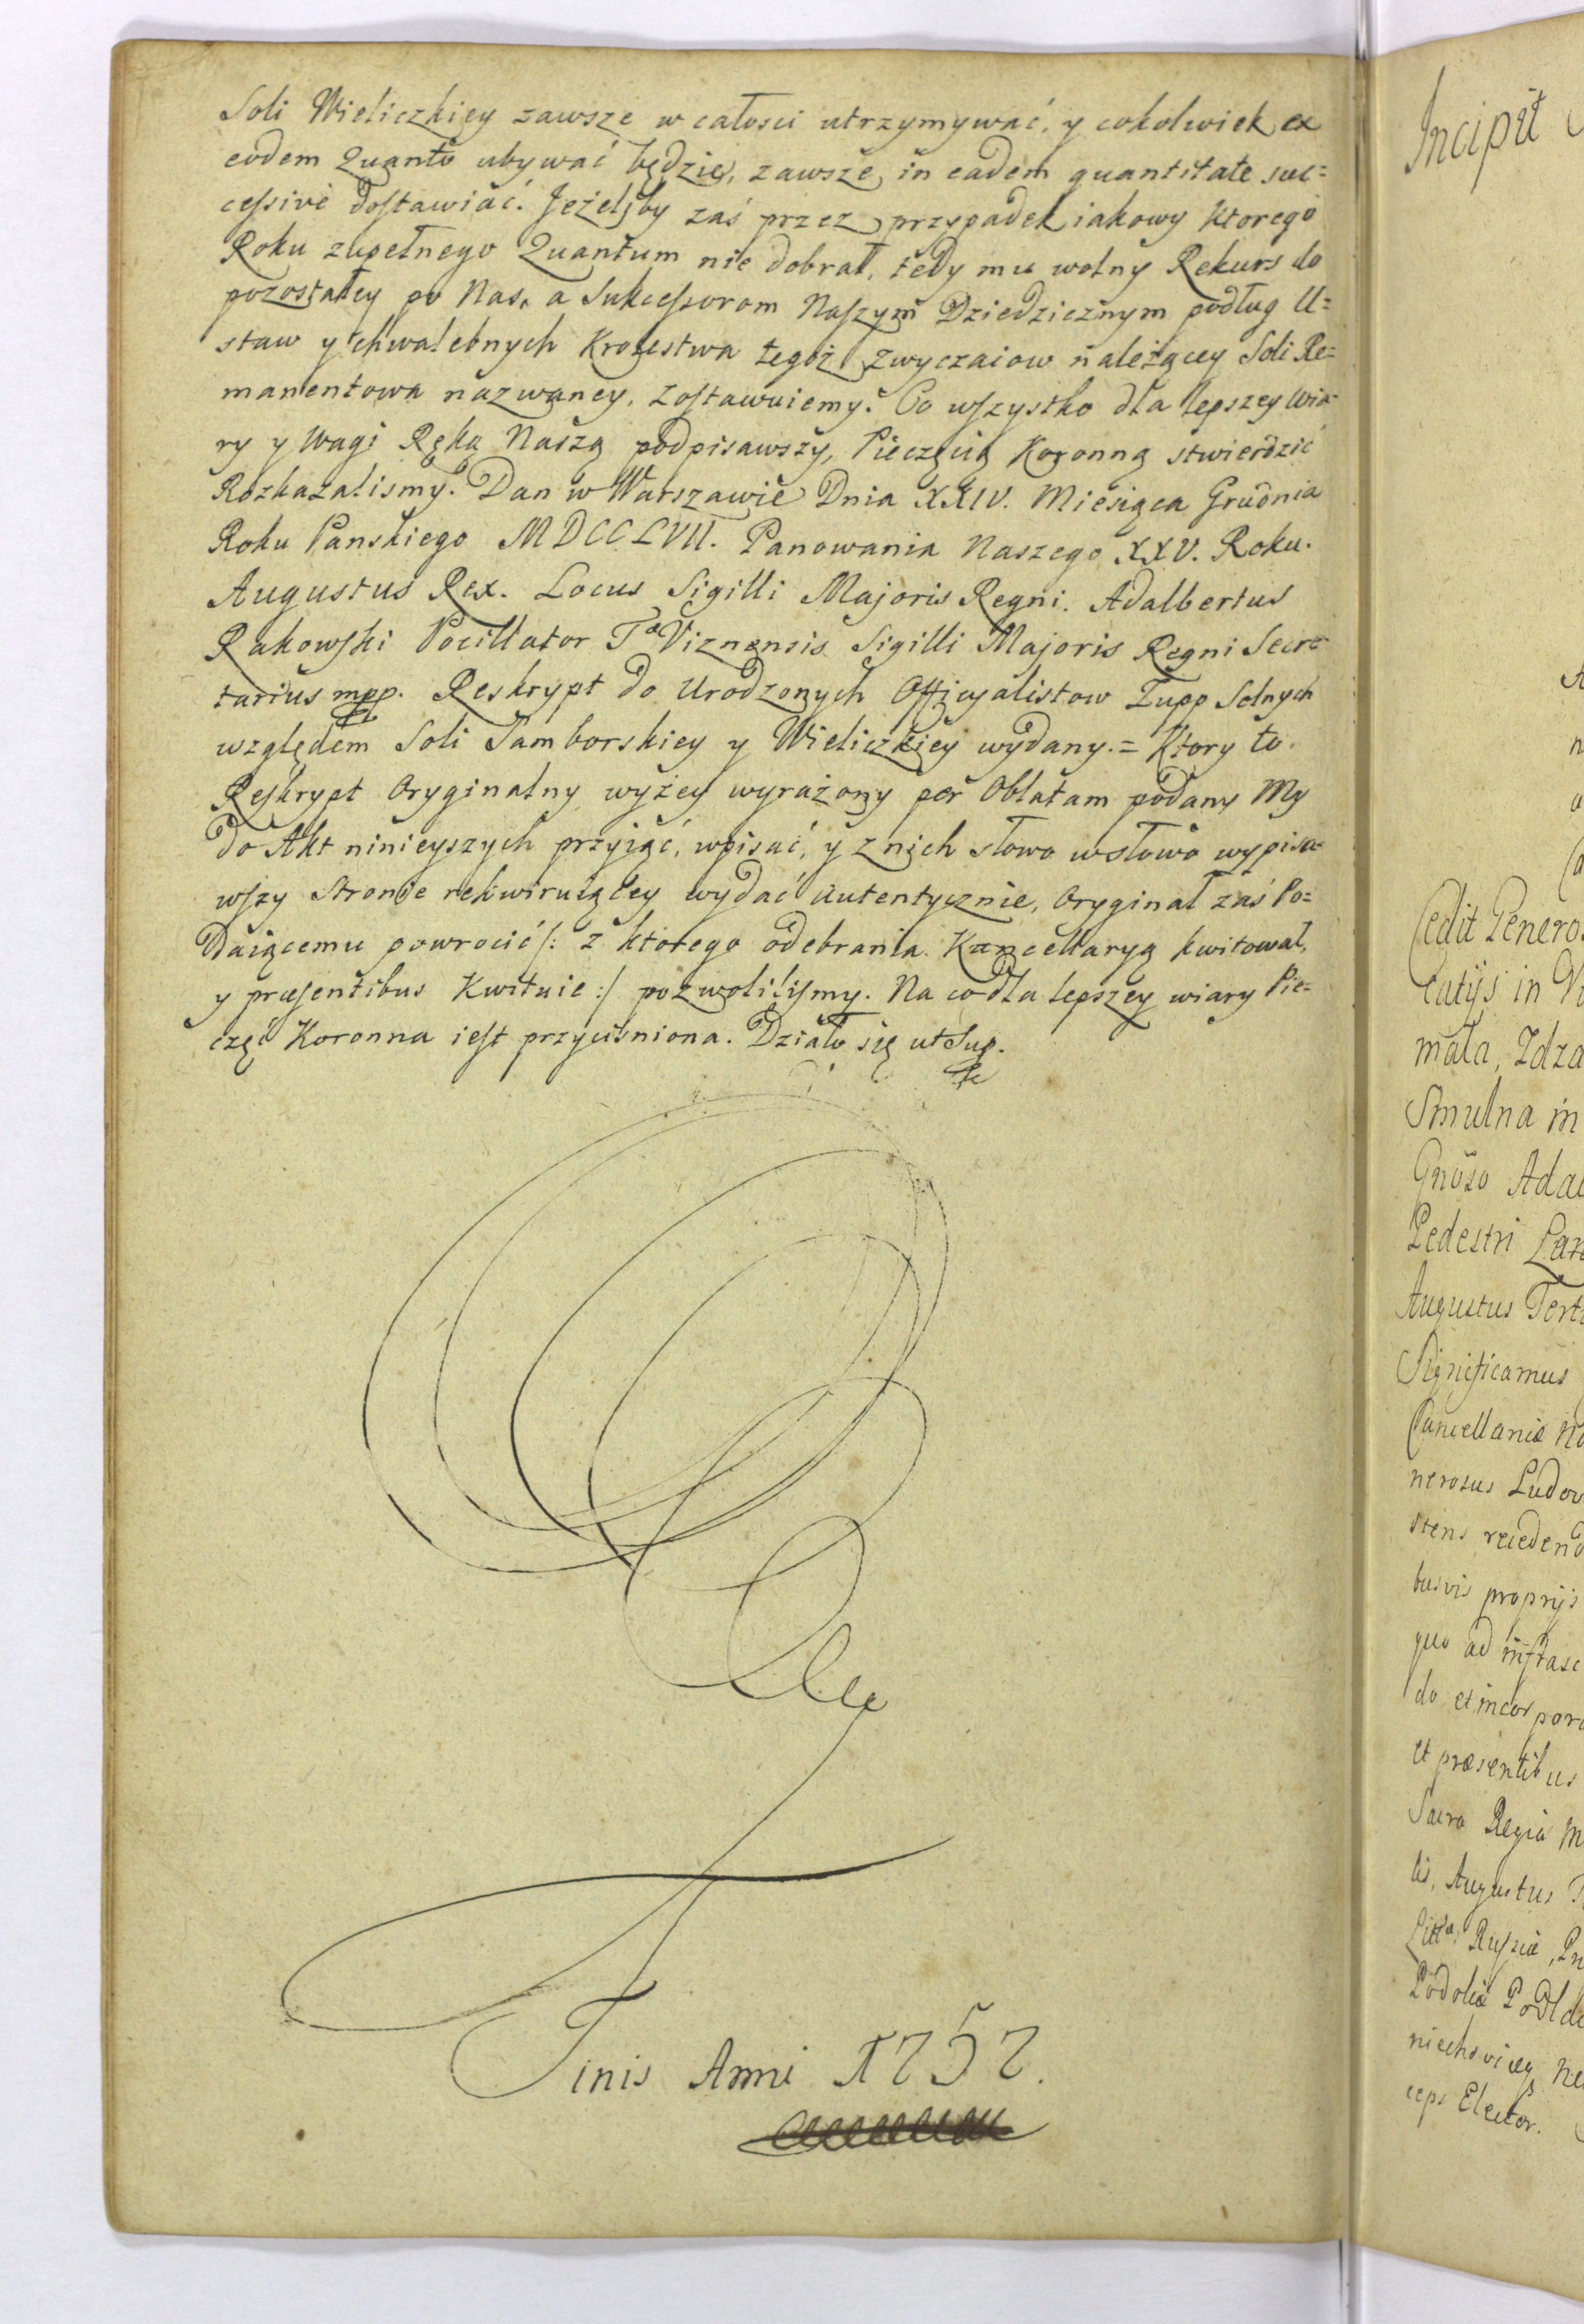 Soli Wieliczkiey zawsze w całosci utrzymywać, y cokolwiek ex
eodem Quanto ubywać będzie, zawsze in eadem quantitate suc=
cessive dostawiać. Jeżeliby zaś przez przypadek iakowy ktorego
Roku zupełnego Quantum nie dobrał, tedy mu wolny Rekurs do
pozostałey po Nas, a Sukcessorom Naszym Dziedzicznym podług U=
staw y chwalebnych Krolestwa tegoż zwyczaiow należącey Soli Re=
manentowa nazwaney, zostawuiemy. Co wszystko dla lepszey wia=
ry y wagi Ręką Naszą podpisawszy, Pieczęcią Koronną stwierdzić
Rozkazalismy. Dan w Warszawie Dnia XXIV. Miesiąca Grudnia
Roku Panskiego MDCCLVII. Panowania Naszego XXV. Roku.
Augustus Rex. Locus Sigilli Majoris Regni. Adalbertus
Rakowski Pocillator Tæ Viznensis Sigilli Majoris Regni Secre=
tarius mpp. Reskrypt do Urodzonych Officyalistow Zupp Solnych
względem Soli Samborskiey y Wieliczkiey wydany. = Ktory to
Reskrypt Oryginalny wyżey wyrażony per Oblatam podany My
do Akt ninieyszych przyiąć, wpisać, y z nich słowo w słowo wypisa=
wszy Stronie rekwiruiącey wydać autentycznie, Oryginał zaś Po=
daiącemu powrocić /: z ktorego odebrania Kancellaryą kwitował,
y præsentibus Kwituie :/ pozwolilismy. Na co dla lepszey wiary Pie=
częć Koronna iest przycisniona. Działo się ut Sup.
Finis Anni 1757.
Incipit
Cedit Genero
catijs in
mala, Zdza
Smulna in
Gnoso Ada
Pedestri
Augustus Terti
Significamus
Cancellariæ No
nerosus Ludov
stens recedend
busvis proprijs
quo ad
do et incorpora
et præsentibus
Sacra Regia M
lis, Augustus T
Russiæ, Pr
Podoliæ Podl
niechoviæq
ceps Elector.